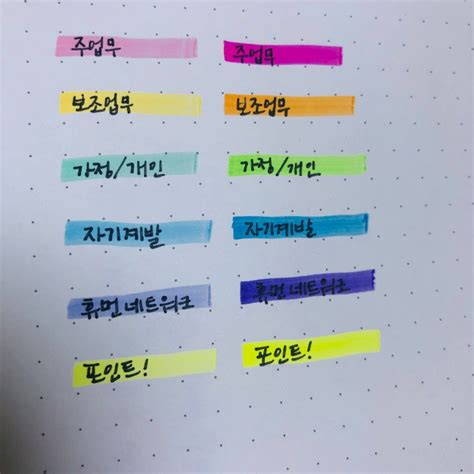 주업무 주업무
보조업무 보조업무
가정/개인 가정/개인
자기계발 자기계발
휴먼네트워크 휴먼네트워크
포인트! 포인트!